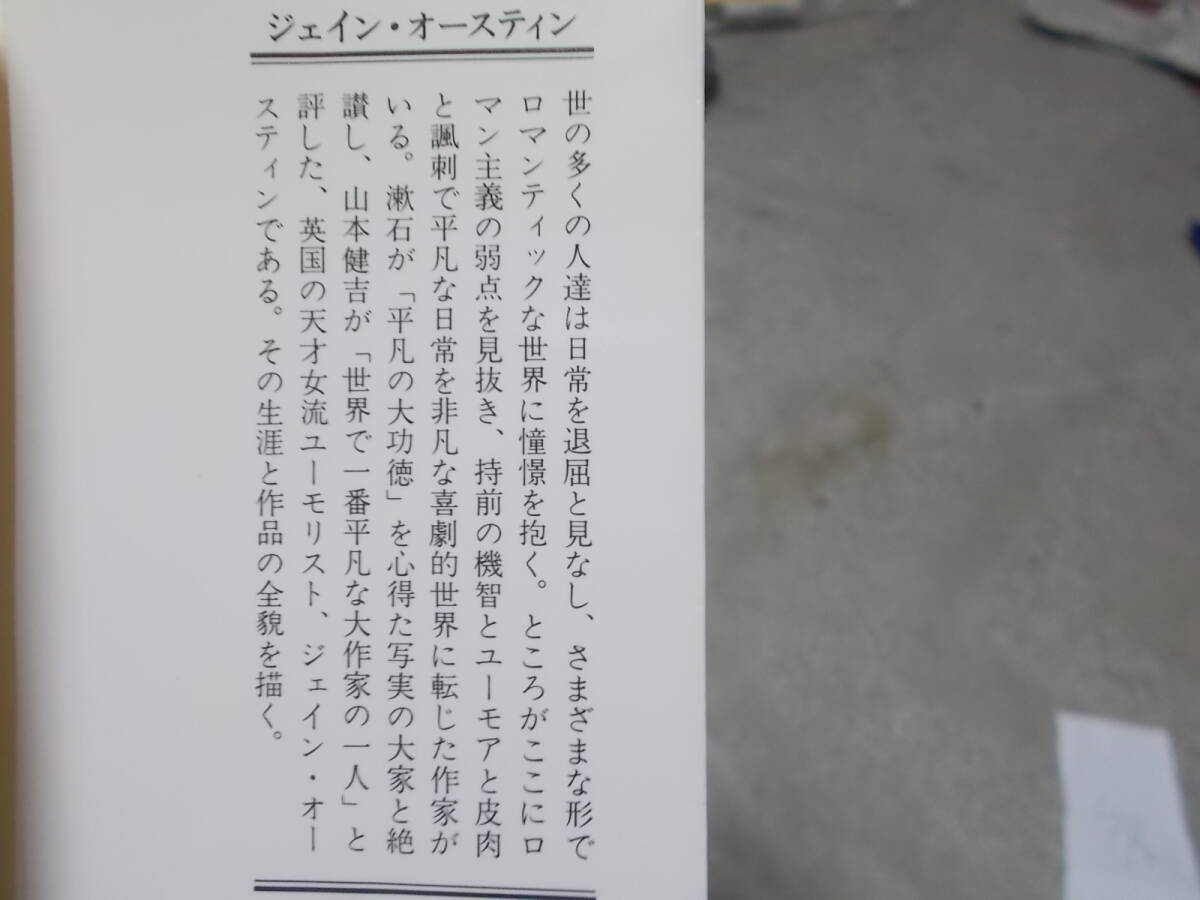 ジェイン・オースティン
世の多くの人達は日常を退屈と見なし、さまざまな形で
ロマンティックな世界に憧憬を抱く。ところがここにロ
マン主義の弱点を見抜き、持前の機智とユーモアと皮肉
と諷刺で平凡な日常を非凡な喜劇的世界に転じた作家が
いる。漱石が「平凡の大功徳」を心得た写実の大家と絶
讃し、山本健吉が「世界で一番平凡な大作家の一人」と
評した、英国の天才女流ユーモリスト、ジェイン・オー
スティンである。その生涯と作品の全貌を描く。